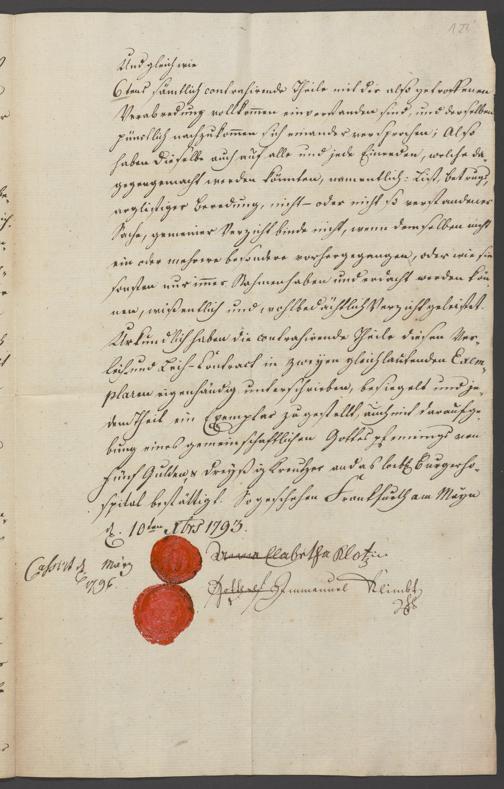 Und gleich wie
6tens sämtlich contrahirende Theile mit der also getroffenen
Verabredung vollkommen einverstanden sind, und derselben
pünctlich nachzukommen sich einander versprochen; Also
haben dieselbe auch auf alle und jede Einreden, welche da-
gegen gemacht werden könnten, namentlich: List, Betrugs,
arglistiger Beredung, nicht- oder nicht so verstandener
Sache, gemeiner Verzicht binde nicht, wenn demselben nicht
ein oder mehrere besondere vorhergegangen, oder wie sie
sonsten nur immer Nahmen haben und erdacht werden kön-
nen, wissentlich und wohlbedächtlich Verzicht geleistet.
Urkundlich haben die contrahirende Theile diesen Ver-
leih und Leih-Contract in zweyen gleichlautenden Exem-
plaren eigenhändig unterschrieben, besiegelt und je-
dem Theil ein Exemplar zugestellt, auch mit Daraufge-
bung eines gemeinschaftlichen Gottespfennings von
fünf Gulden, dreyßig Kreutzer an das löbl. Burgerho-
spital bestättigt. So geschehen Franckfurth am Mayn
d. 10ten Xbris 1793.
Cassirt d. März
1796.
Elabetha Klotzin
Gotthold Immanuel Klimbt